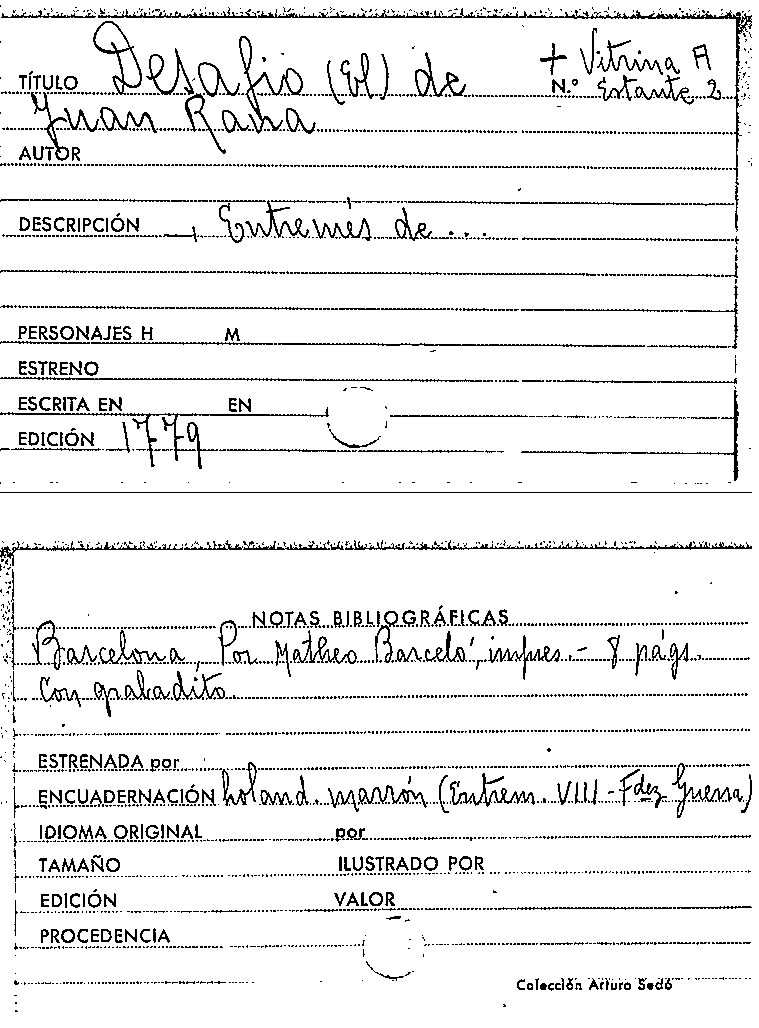 TÍTULO Desafio (El) de + Vitrina A
Juan Rana N.º Estante 2
AUTOR
DESCRIPCIÓN —, Entremés de ...
PERSONAJES H M
ESTRENO
ESCRITA EN EN
EDICIÓN 1779
NOTAS BIBLIOGRÁFICAS
Barcelona, Por Matheo Barceló, impres.- 8 págs.
Con grabadito.
ESTRENADA por
ENCUADERNACIÓN holand. marrón (Entrem. VIII - Fdez Guerra)
IDIOMA ORIGINAL por
TAMAÑO ILUSTRADO POR
EDICIÓN VALOR
PROCEDENCIA
Colección Arturo Sedó